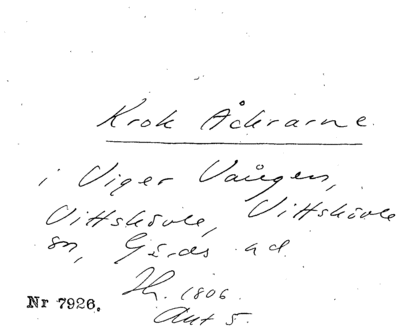 Krok Åckrarne
i Viger Vången,
Vittskövle, Vittskövle
sn, Gärds hd
Sk. 1806
Akt 5.
Nr 7926.